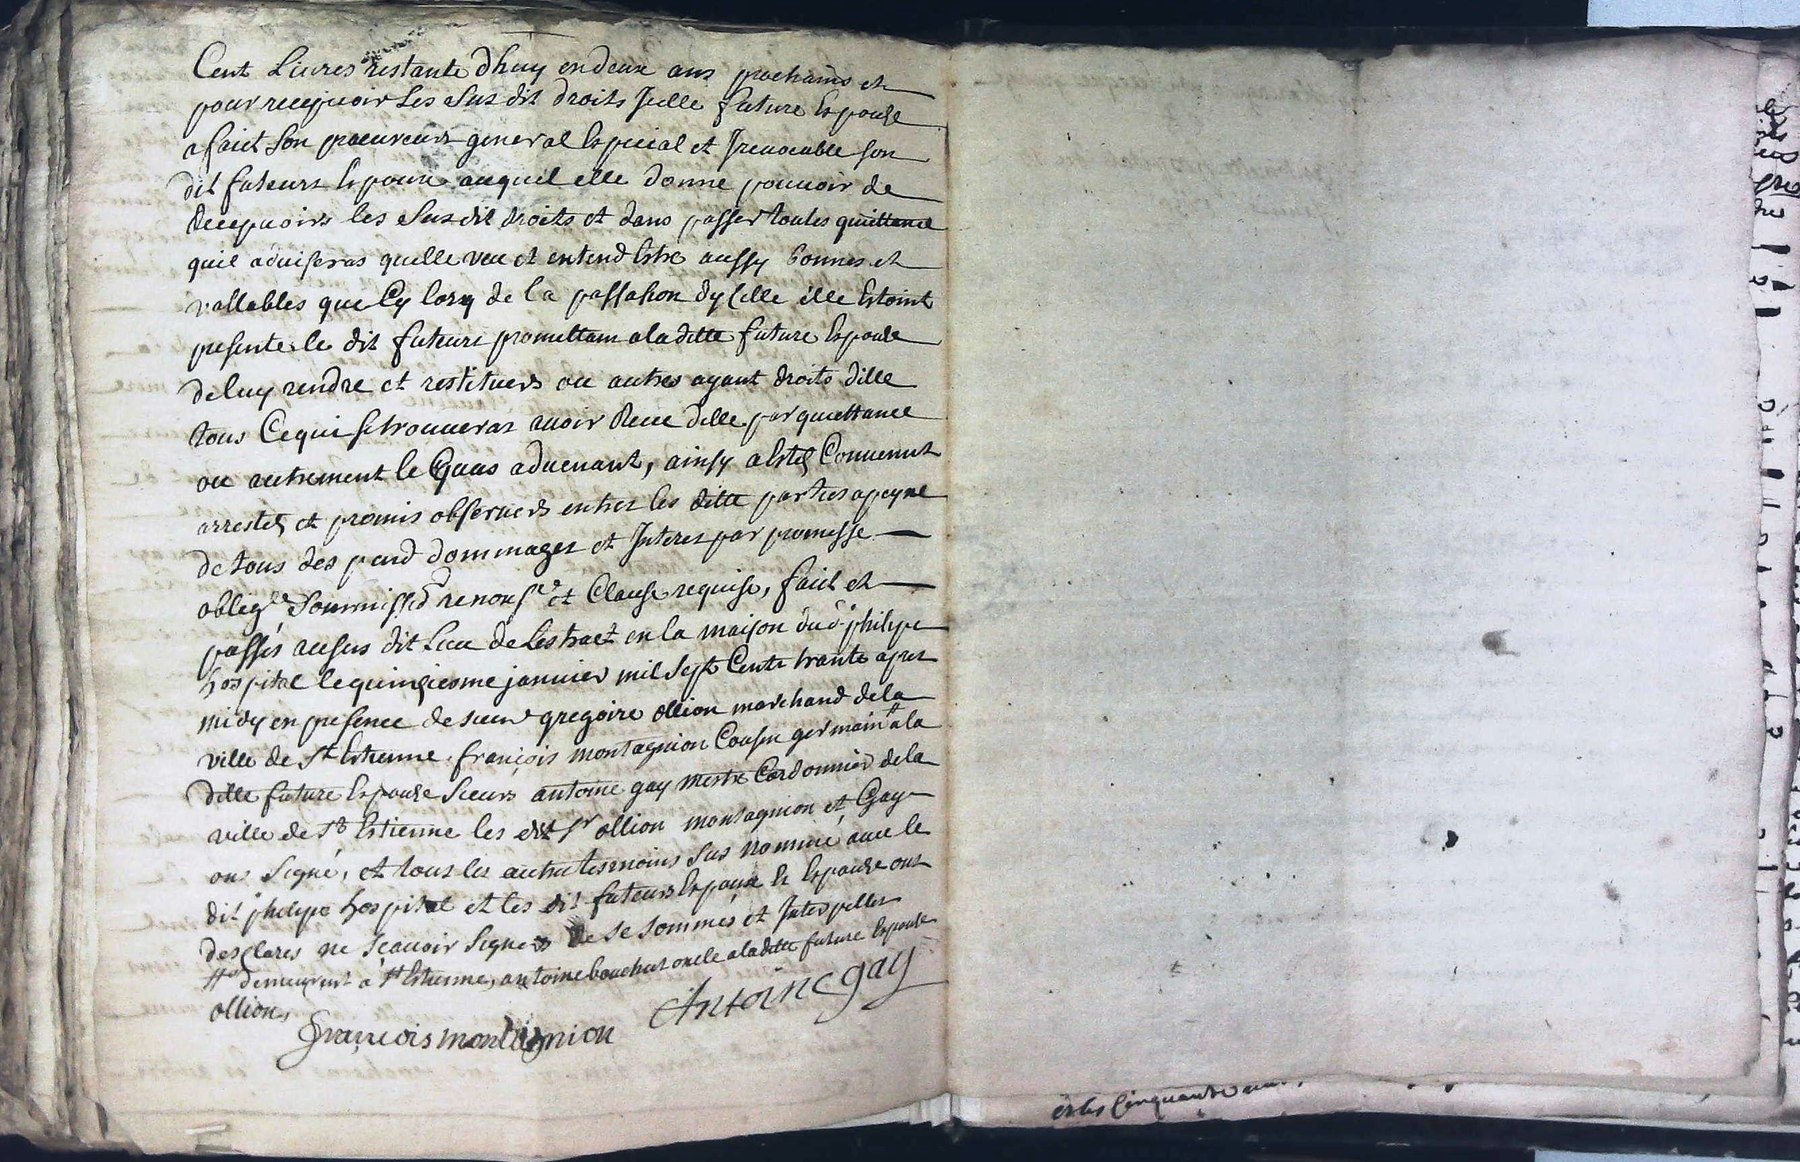 Cent Livres restante dhuy en deux ans prochains et
pour recepuoir les susdit droits Jcelle future Espouze
a faict son procureur general Especial et Jreuocable son
dit futeurs Espoux auquel elle donne pouuoir de
Recepuoirs les Susdit droits et dans passer toutes quittance
quil aduiseras quelle veu et entend Estre aussy bonnes et
vallables que Cy lorsq de la passation dycelle elle Estoint
presente le dit futeurs promettans a la ditte future Espouse
de luy rendre et restituers ou autres ayant droits dille
tous Ce qui se trouueras auoir Receu delle par quiettance
ou autrement le Quas aduenant, ainsy a Esté Conuenut
arresté et promis obseruers entres les ditte parties a peyne
de tous des pend dommages et Jnterez par promesse
oblig.. Soummiss.. renons.. et Clause requise, faict et
passés au sus dit Lieu de Lestract en la maison du d. philipe
hospital le quinziesme januier mil Sept Cents trante apres
midy en presence de sieur gregoire ollion marchand de la
ville de St Estienne, françois montagnion Cousin germain # a la
ditte future Espouze Sieurs antoine gay mestre Cordonnier de la
ville de St Estienne les dit sr ollion montagnion et Gay
ons Signé, et tous les autres tesmoins Sus nommé auec le
dit philipe hospital et les dit futeurs Espoux et Espouze ont
desclares ne Scauoir Signers de Ce Sommés et Jnterpelles
# demeurent a St Estienne, antoine bouchet oncle a la ditte future Espouse
ollion,
françois montagnion
Antoine gay
et les Cinquante